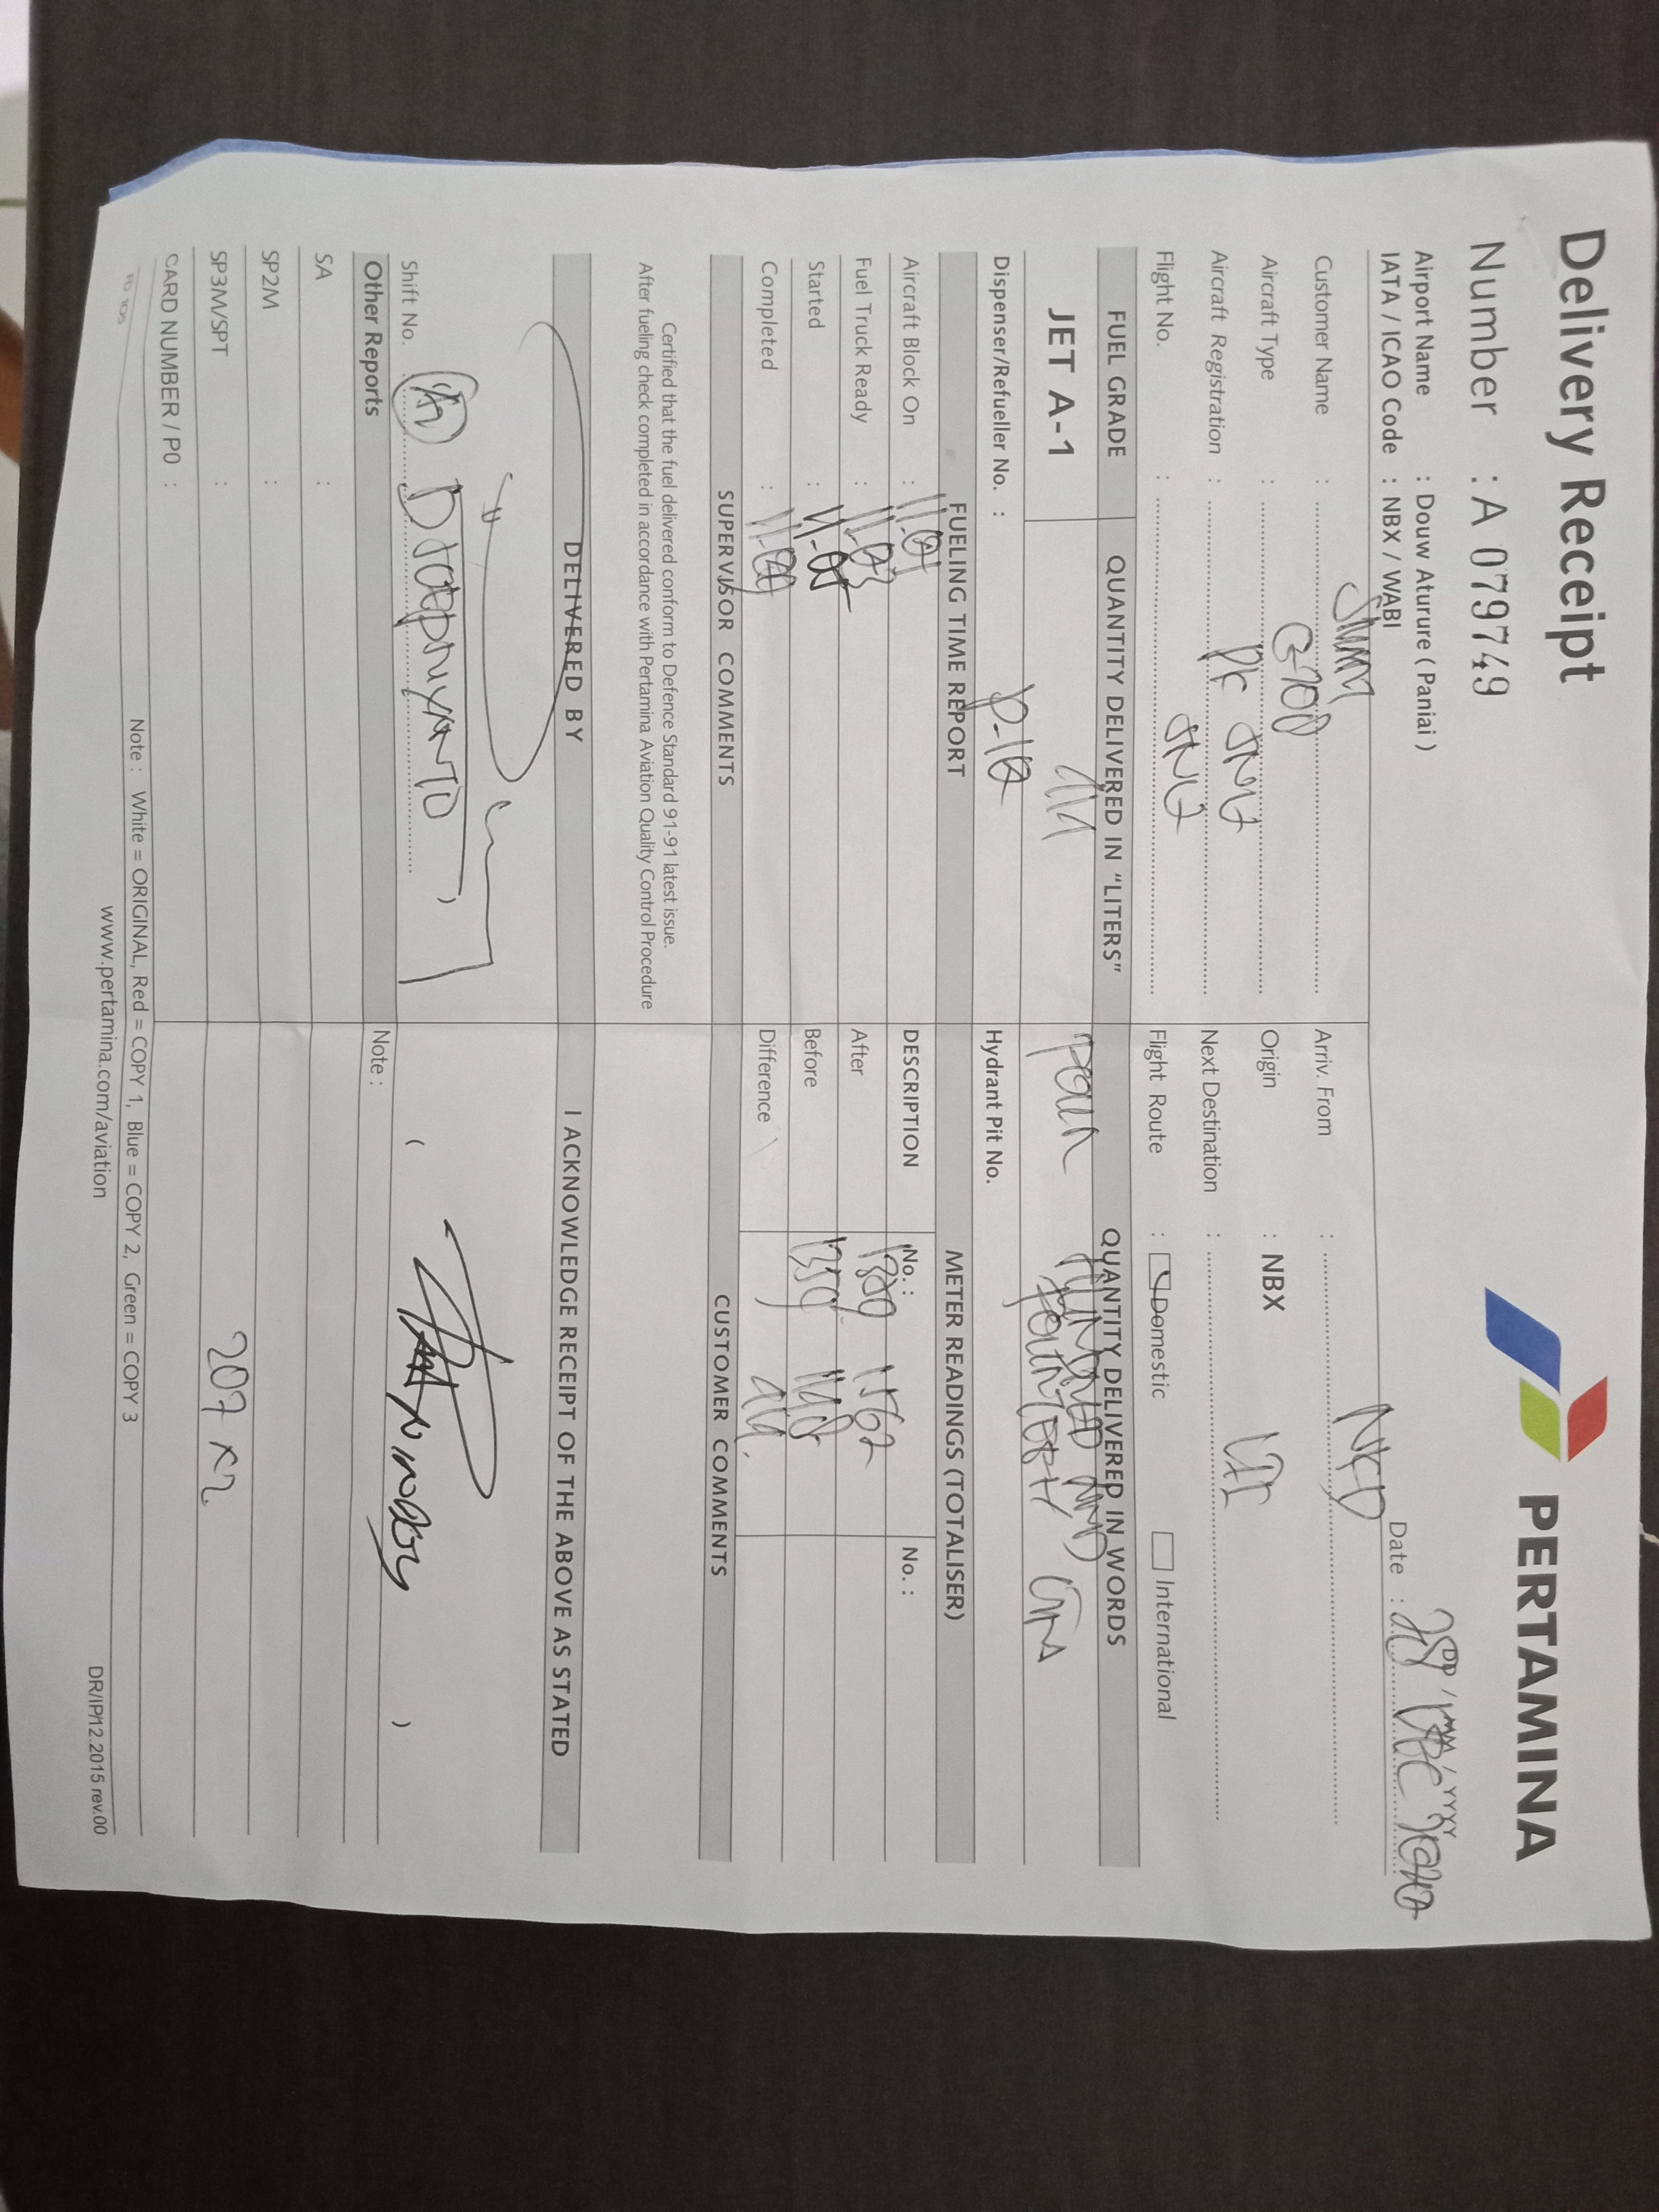 Delivery Receipt
PERTAMINA
Number : A 079749
Airport Name : Douw Aturure ( Paniai )
IATA / ICAO Code : NBX / WABI
Date :
DD / MM / YYYY
Customer Name :
Arriv. From :
Aircraft Type :
Origin : NBX
Aircraft Registration : PK
Next Destination :
Flight No. :
Flight Route : Domestic International
FUEL GRADE
QUANTITY DELIVERED IN "LITERS"
QUANTITY DELIVERED IN WORDS
JET A-1
414
FOUR HUNDRED AND
FOURTEEN
Dispenser/Refueller No. :
Hydrant Pit No.
FUELING TIME REPORT
METER READINGS (TOTALISER)
Aircraft Block On : 11-01
DESCRIPTION No. : No. :
Fuel Truck Ready : 11-03
After 1562
Started : 11-05
Before 1350 1148
Completed :
Difference 414
SUPERVISOR COMMENTS
CUSTOMER COMMENTS
Certified that the fuel delivered conform to Defence Standard 91-91 latest issue.
After fueling check completed in accordance with Pertamina Aviation Quality Control Procedure
DELIVERED BY
I ACKNOWLEDGE RECEIPT OF THE ABOVE AS STATED
Shift No.
( )
Other Reports
Note :
SA :
SP2M :
SP3M/SPT :
207 x2
CARD NUMBER / P0 :
Note : White = ORIGINAL, Red = COPY 1, Blue = COPY 2, Green = COPY 3
www.pertamina.com/aviation
DR/IP/12.2015 rev.00